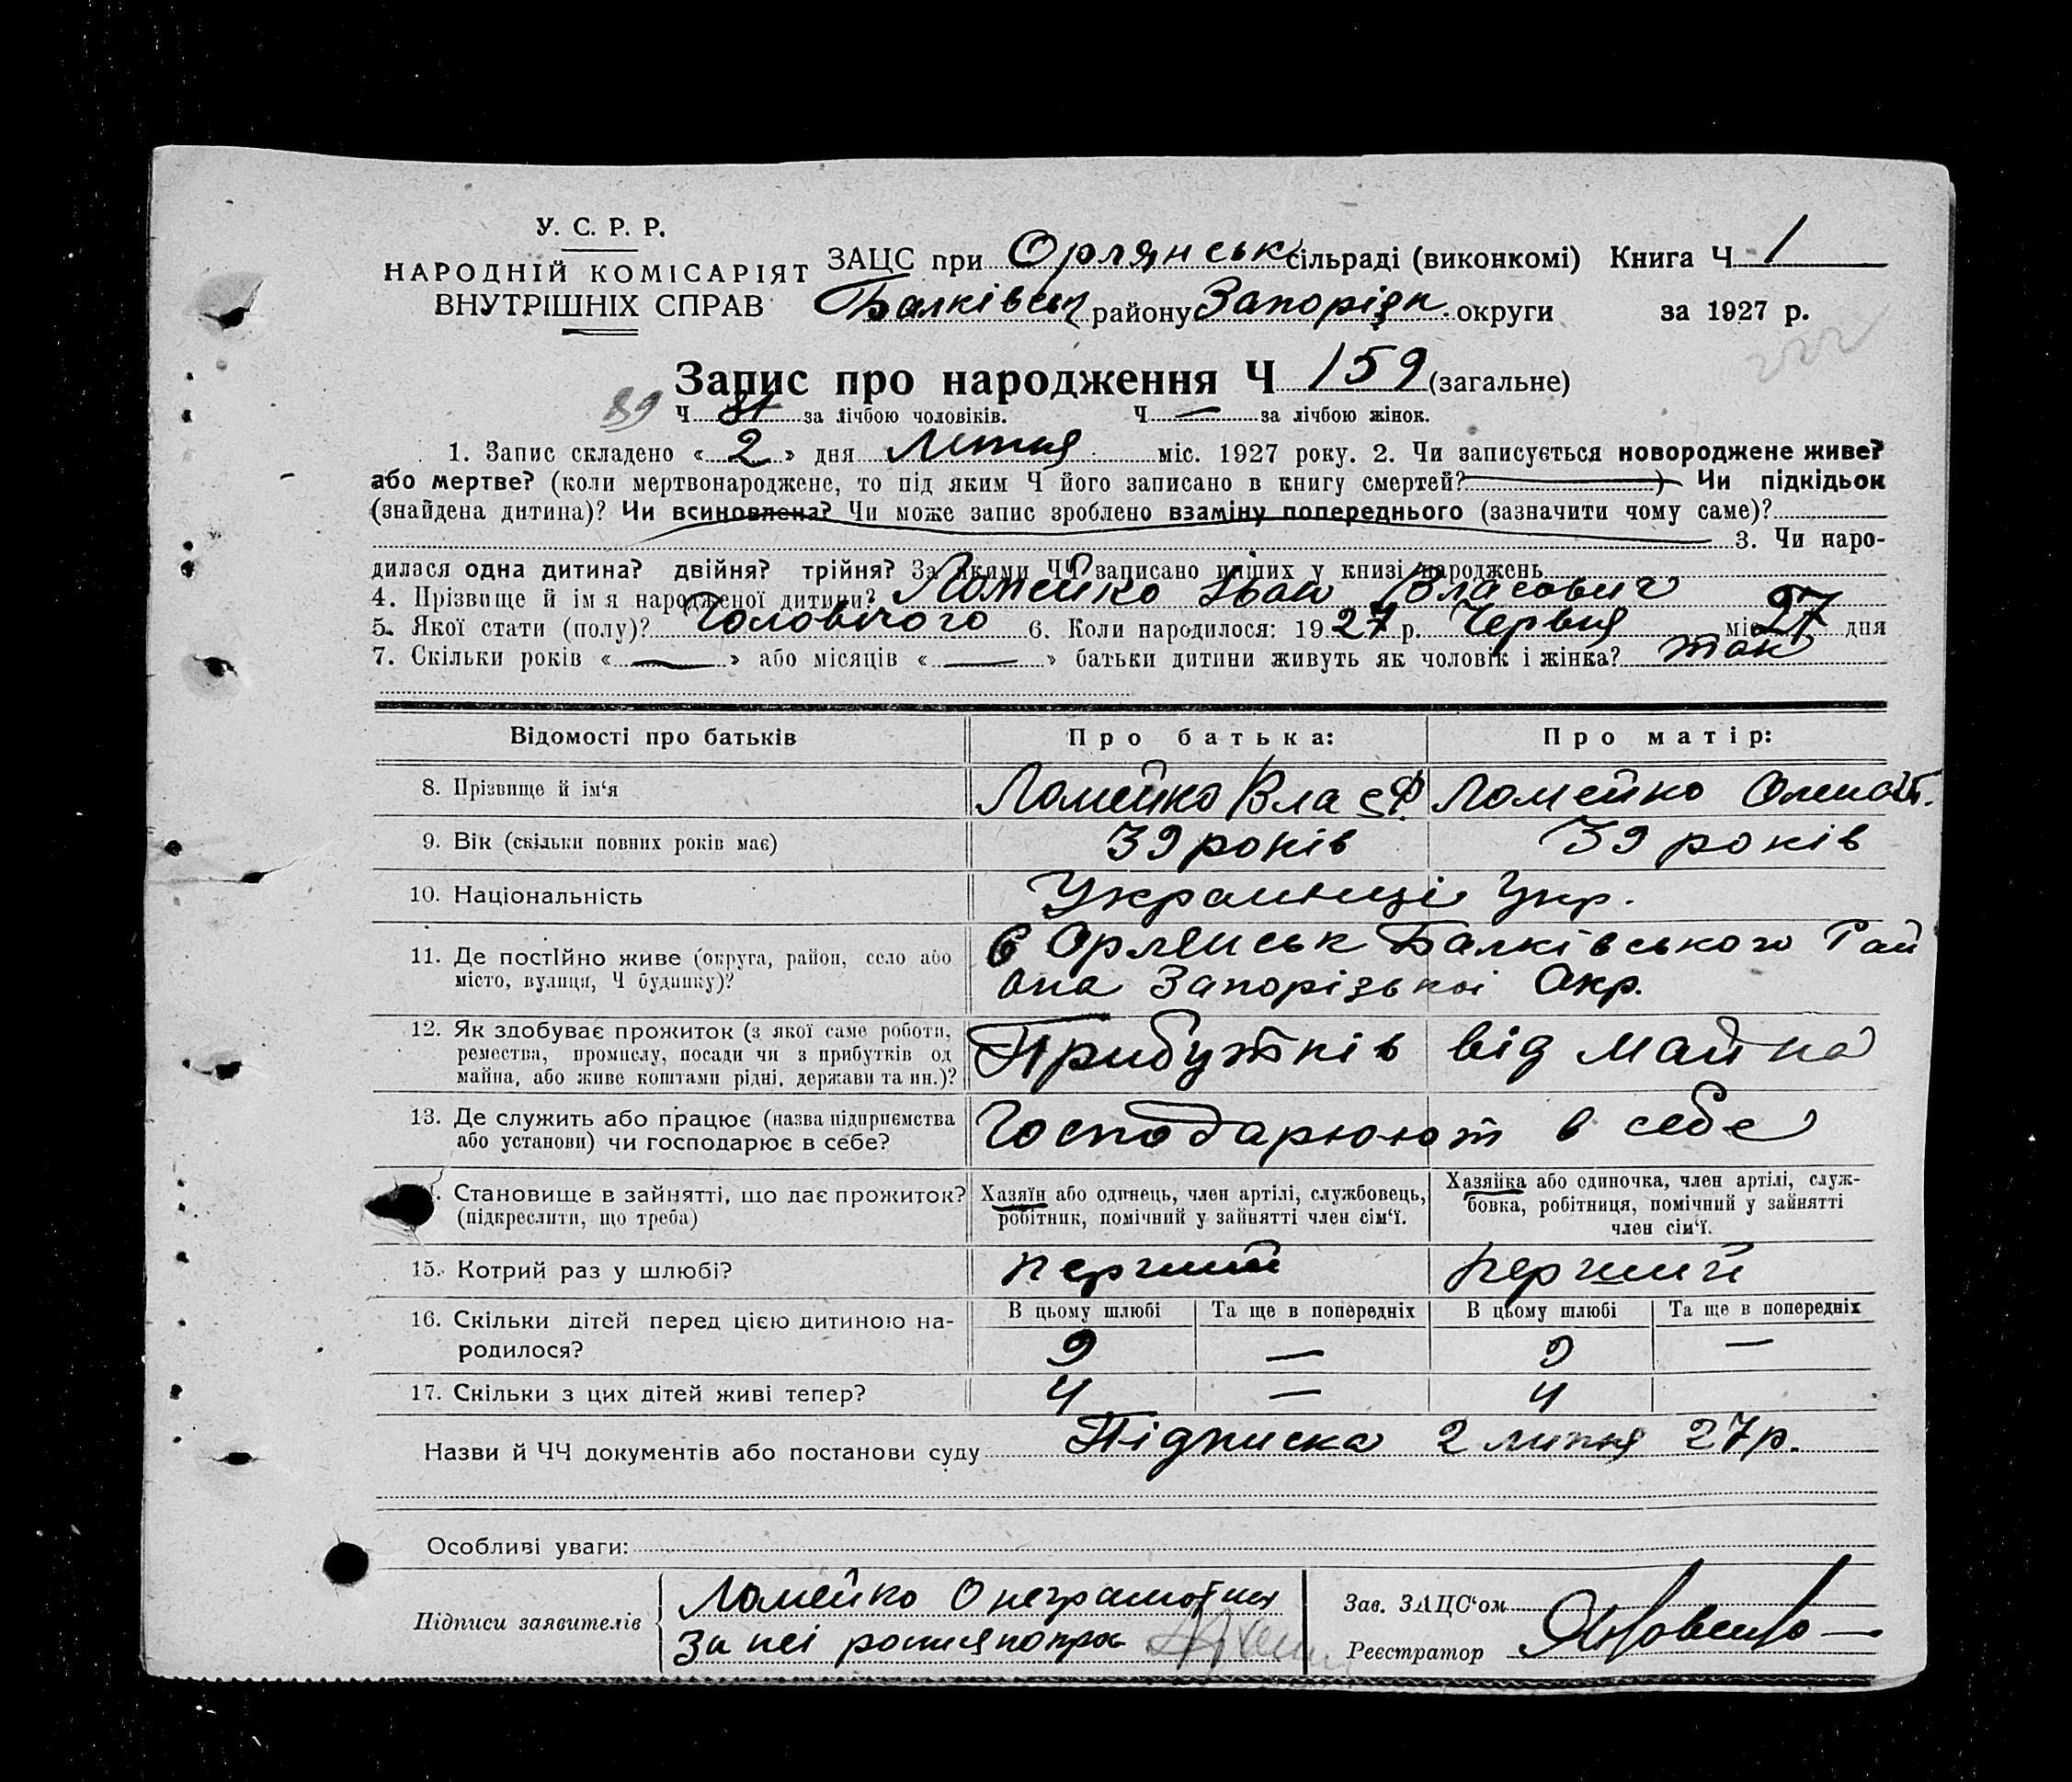 У. С. Р. Р.
НАРОДНІЙ КОМІСАРІЯТ
ВНУТРІШНІХ СПРАВ
ЗАЦС при Орлянськ сільраді (виконкомі) Книга Ч 1
Балківськ району Запорізк. округи за 1927 р.
222
Запис про народження Ч 159 (загальне)
89 Ч 81 за лічбою чоловіків. Ч — за лічбою жінок.
1. Запис складено «2» дня Липня міс. 1927 року. 2. Чи записується новороджене живе?
або мертве? (коли мертвонароджене, то під яким Ч його записано в книгу смертей? ) Чи підкідьок
(знайдена дитина)? Чи всиновлена? Чи може запис зроблено взаміну попереднього (зазначити чому саме)?
3. Чи наро-
дилася одна дитина? двійня? трійня? За якими ЧЧ записано инших у книзі народжень
4. Прізвище й ім я народженої дитини? Ломейко Іван Власович
5. Якої стати (полу)? Чоловічого 6. Коли народилося: 1927 р. Червня міс 27 дня
7. Скільки років «—» або місяців «—» батьки дитини живуть як чоловік і жінка? так
Відомості про батьків Про батька: Про матір:
8. Прізвище й ім‘я Ломейко Влас Ф Ломейко
9. Вік (скільки повних років має) 39 років 39 років
10. Національність Украинці Укр.
11. Де постійно живе (округа, район, село або місто, вулиця, Ч будинку)?
С Орлянськ Балківського Рай
она Запорізькоі Окр.
12. Як здобуває прожиток (з якої саме роботи,
ремества, промислу, посади чи з прибутків од
майна, або живе коштами рідні, держави та ин.)?
Прибутків від майна
13. Де служить або працює (назва підприємства
або установи) чи господарює в себе?
Господарюют в себе
Становище в зайнятті, що дає прожиток?
(підкреслити, що треба)
Хазяїн або одинець, член артілі, службовець,
робітник, помічний у зайнятті член сім‘ї.
Хазяйка або одиночка, член артілі, служ-
бовка, робітниця, помічний у зайнятті
член сім‘ї.
15. Котрий раз у шлюбі? перший перший
16. Скільки дітей перед цією дитиною на-
родилося?
В цьому шлюбі Та ще в попередніх В цьому шлюбі Та ще в попередніх
9 — 9 —
17. Скільки з цих дітей живі тепер? 4 — 4
Назви й ЧЧ документів або постанови суду Підписка 2 липня 27 р.
Особливі уваги:
Підписи заявителів
Ломейко О неграмотна
За неі
Зав. ЗАЦС‘ом
Реєстратор